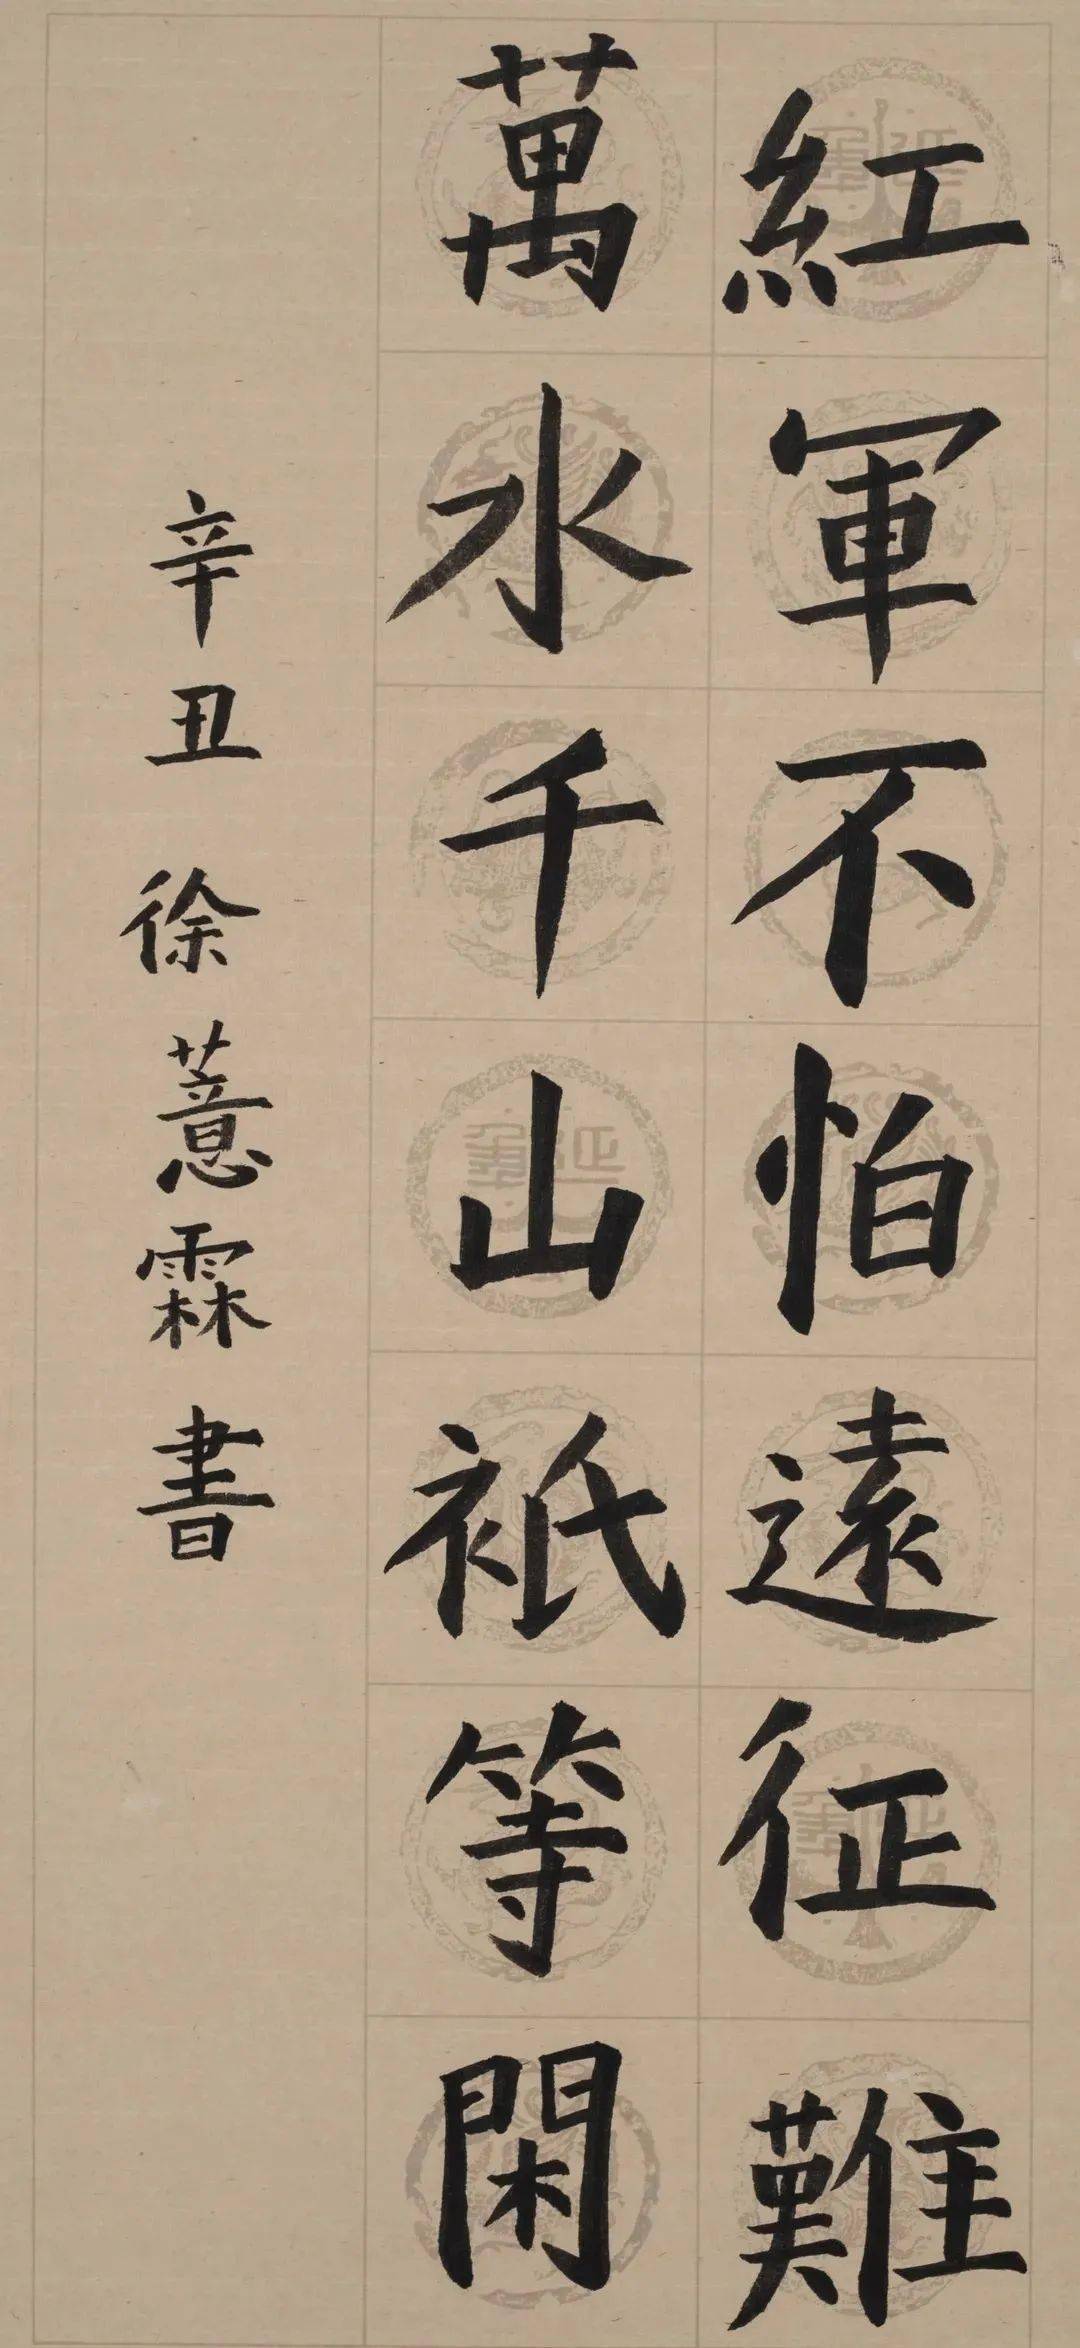 紅軍不怕遠征難
萬水千山衹等閑
辛丑徐薏霖書